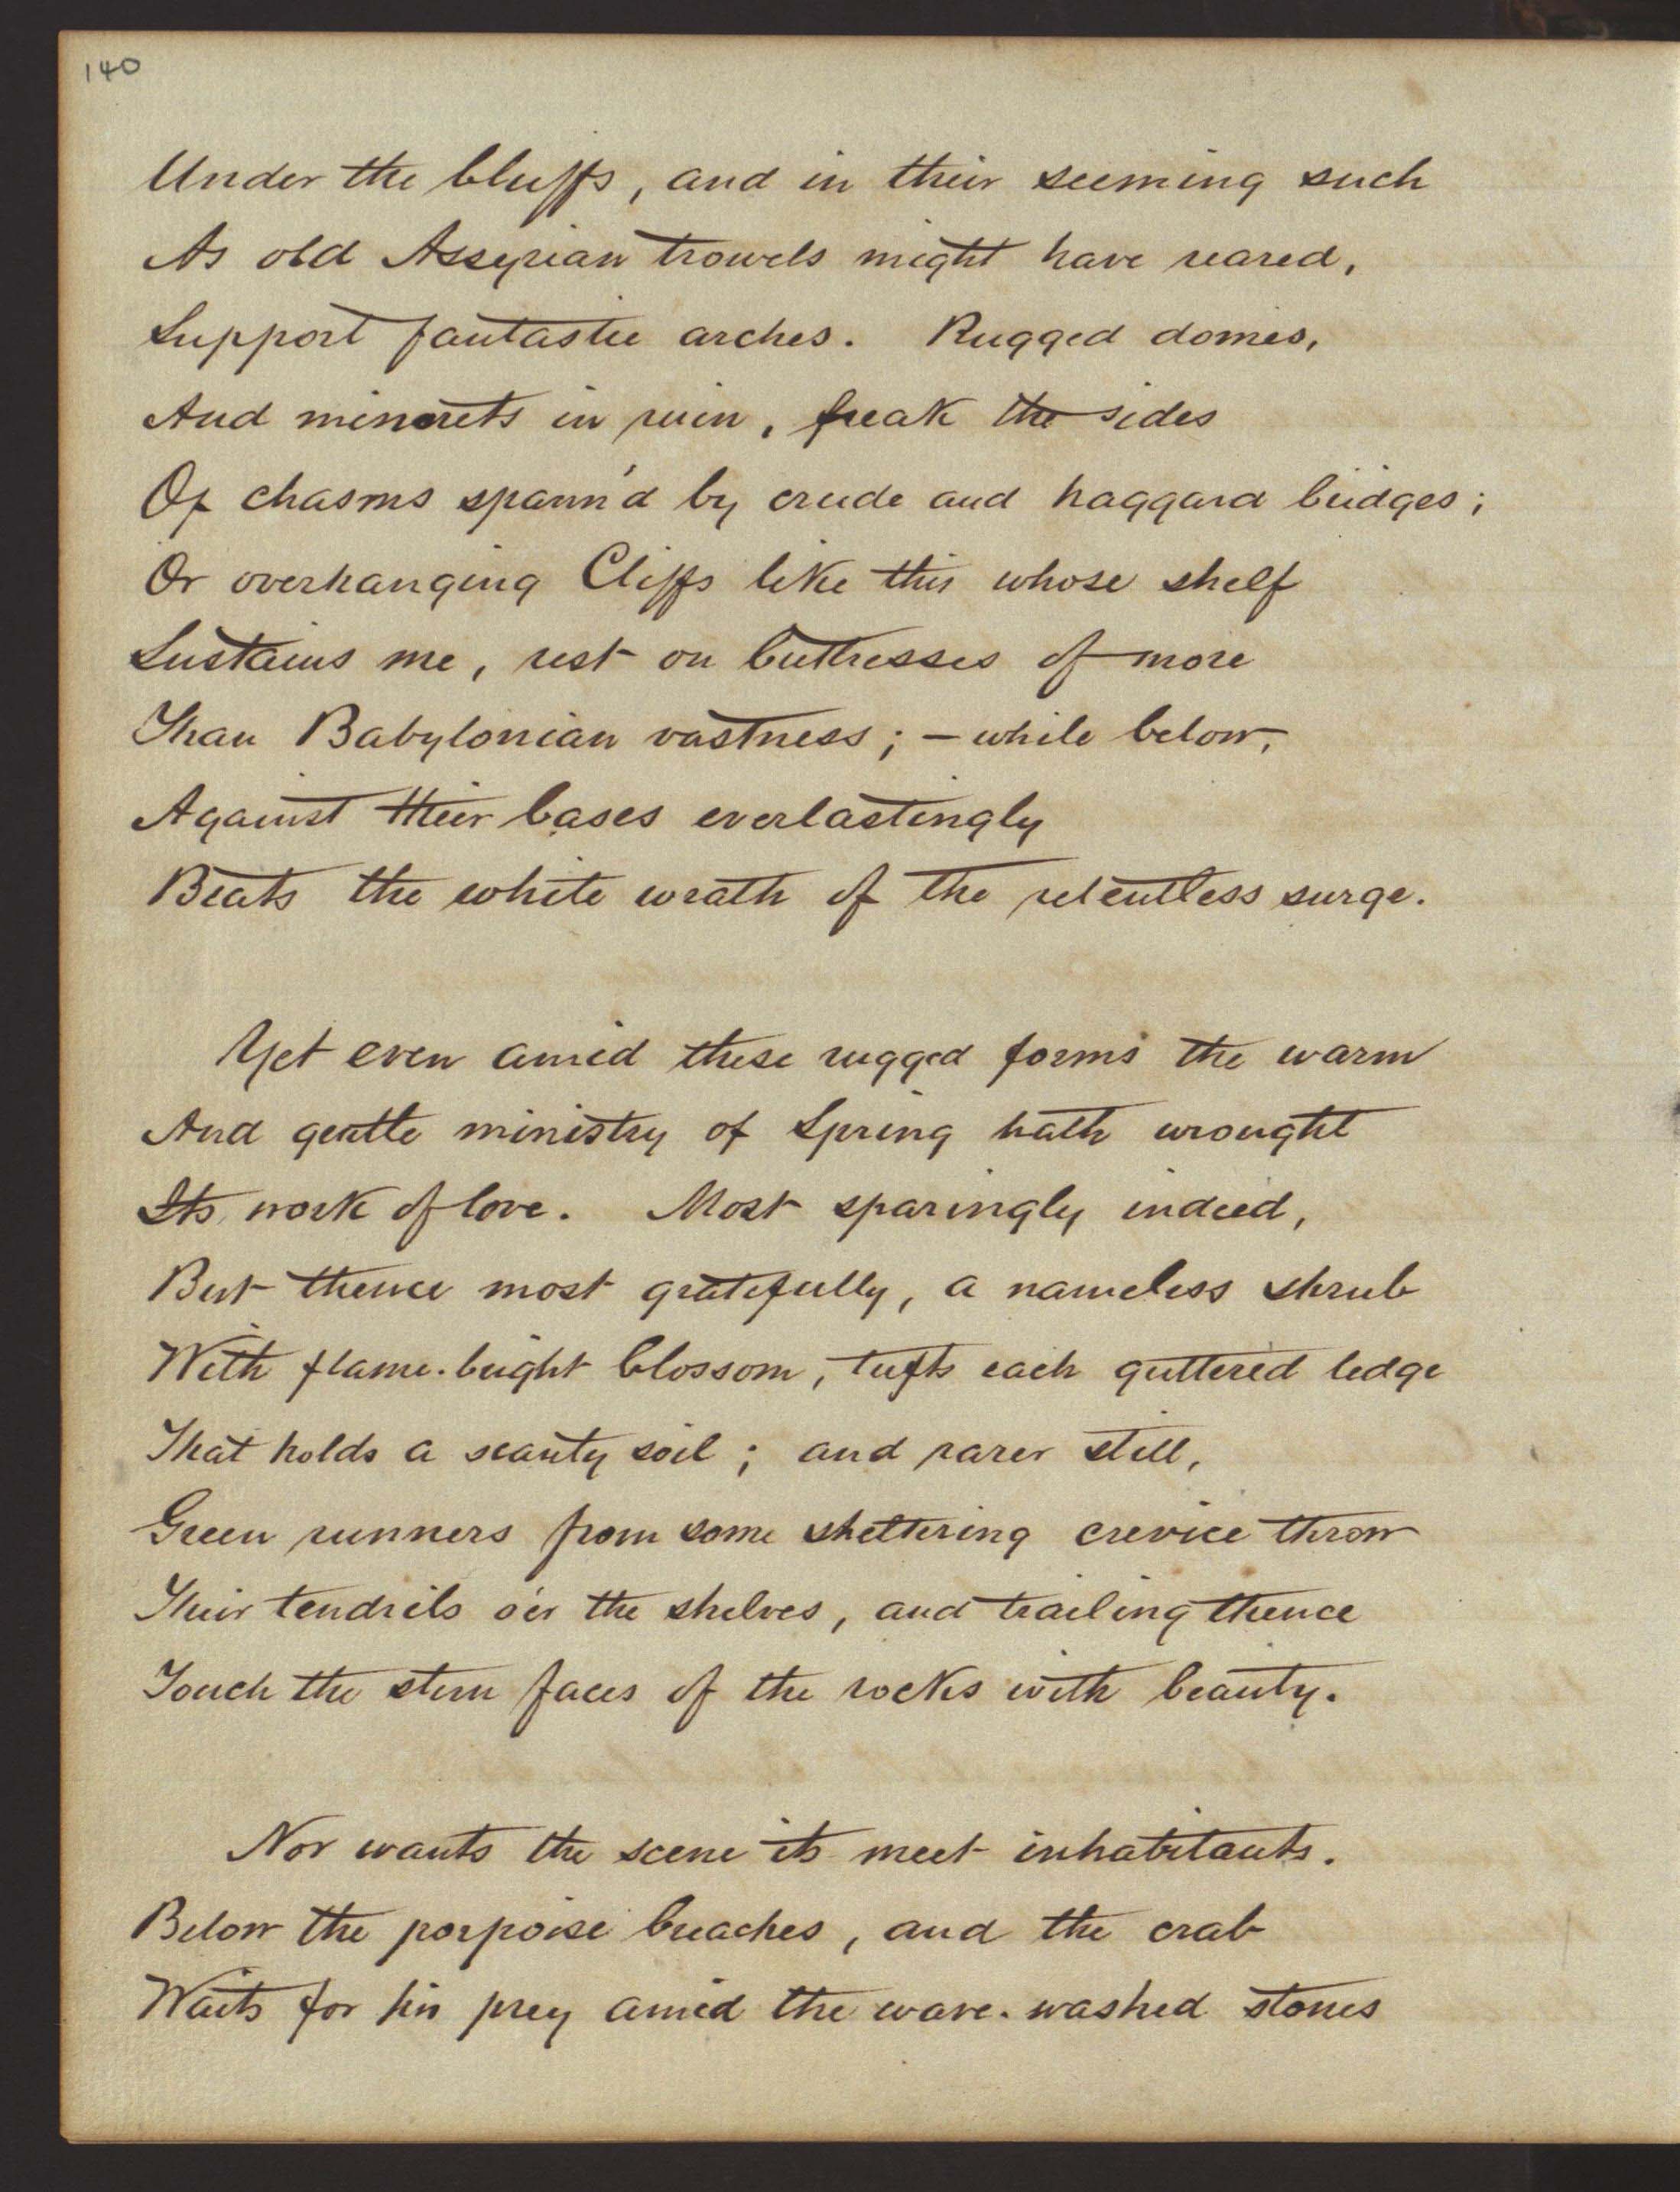 140
Under the bluffs, and in their seeming such
As old Assyrian trowels might have reared,
Support fantastic arches. Rugged domes,
And minarets in ruin, freak the sides
Of chasms spann'd by crude and haggard bridges;
Or overhanging Cliffs like this whose shelf
Sustains me, rest on buttresses of more
Than Babylonian vastness; – while below,
Against their bases everlastingly
Beats the white wrath of the relentless surge.
Yet even amid these rugged forms the warm
And gentle ministry of Spring hath wrought
Its work of love. Most sparingly indeed,
But thence most gratefully, a nameless shrub
With flame-bright blossom, tufts each guttered ledge
That holds a scanty soil; and rarer still,
Green runners from some sheltering crevice throw
Their tendrils o'er the shelves, and trailing thence
Touch the stern faces of the rocks with beauty.
Nor wants the scene its meet inhabitants.
Below the porpoise breaches, and the crab
Waits for his prey amid the wave-washed stones